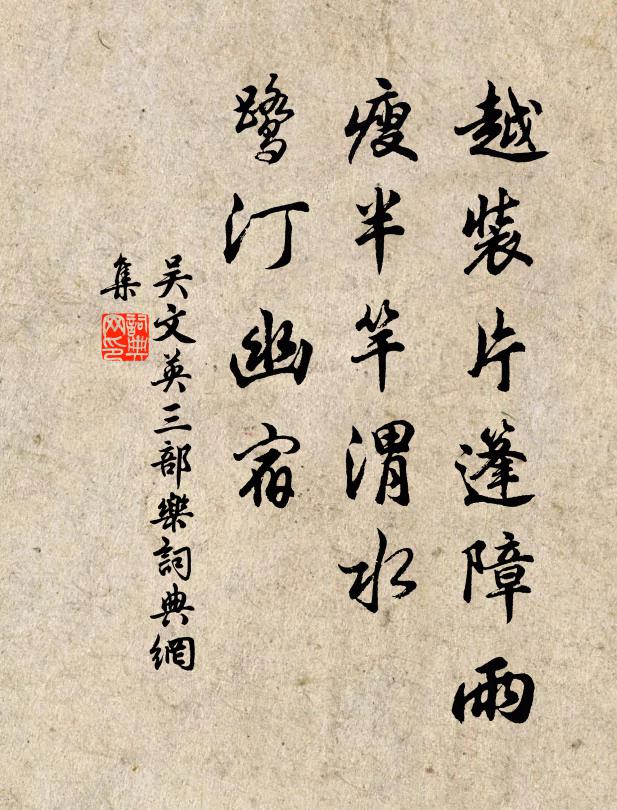 越裝片篷障雨
瘦半竿渭水
鷺汀幽宿
吴文英三部樂詞典網
集
詞典
网印